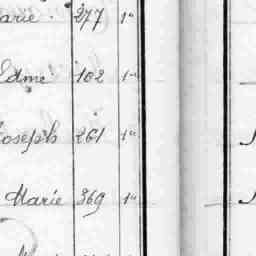 arie. 277 1"
Edme 102 1"
Joseph 261 1"
Marie 369 1"